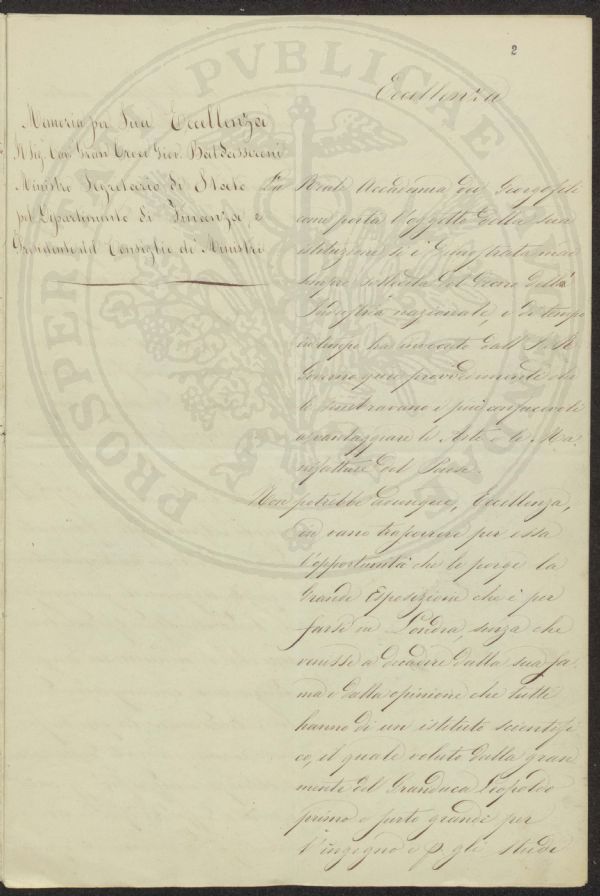 2
Eccellenza
Memoria per Sua Eccellenza
Il Sig. Cav. Gran Croce Giov. Baldasseroni
Ministro Segretario di Stato
pel Dipartimento di Finanze e
Presidente del Consiglio de' Ministri
La Reale Accademia dei Georgofili
come porta l'oggetto della sua
istituzione si è dimostrata mai
sempre sollecita del decoro della
Industria nazionale, e di tempo
in tempo ha invocato dall' I. e R.
Governo quei provvedimenti che
le sembravano i più confacevoli
a vantaggiare le Arti e le Ma
nifatture del Paese.
Non potrebbe dunque, Eccellenza,
in vano trascorrere per essa
l'opportunità che le porge la
Grande Esposizione che è per
farsi in Londra, senza che
venisse a decadere dalla sua fa
ma e dalla opinione che tutti
hanno di un istituto scientifi
co, il quale voluto dalla gran
mente del Granduca Leopoldo
primo e surto grande per
l'ingegno e p. gli studi
PROSPERITATI PUBLICAE